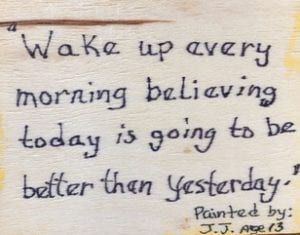 "Wake up every
morning believing
today is going to be
better than yesterday."
Painted by:
J.J. Age 13